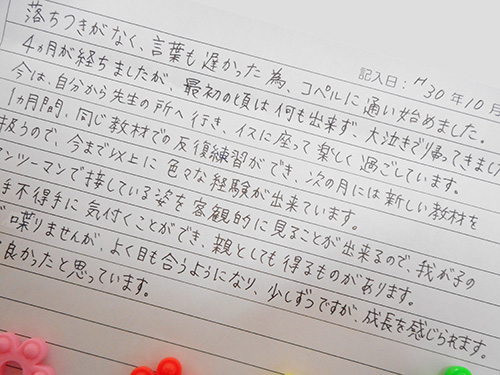 記入日：H30年10月
落ちつきがなく、言葉も遅かった為、コペルに通い始めました。
4ヵ月が経ちましたが、最初の頃は何も出来ず、大泣きで帰ってきまし
今は、自分から先生の所へ行き、イスに座って楽しく過ごしています。
1ヵ月間、同じ教材での反復練習ができ、次の月には新しい教材を
扱うので、今まで以上に色々な経験が出来ています。
ンツーマンで接している姿を客観的に見ることが出来るので、我が子の
手不得手に気付くことができ、親としても得るものがあります。
叶りませんが、よく目も合うようになり、少しずつですが、成長を感じられます。
良かったと思っています。